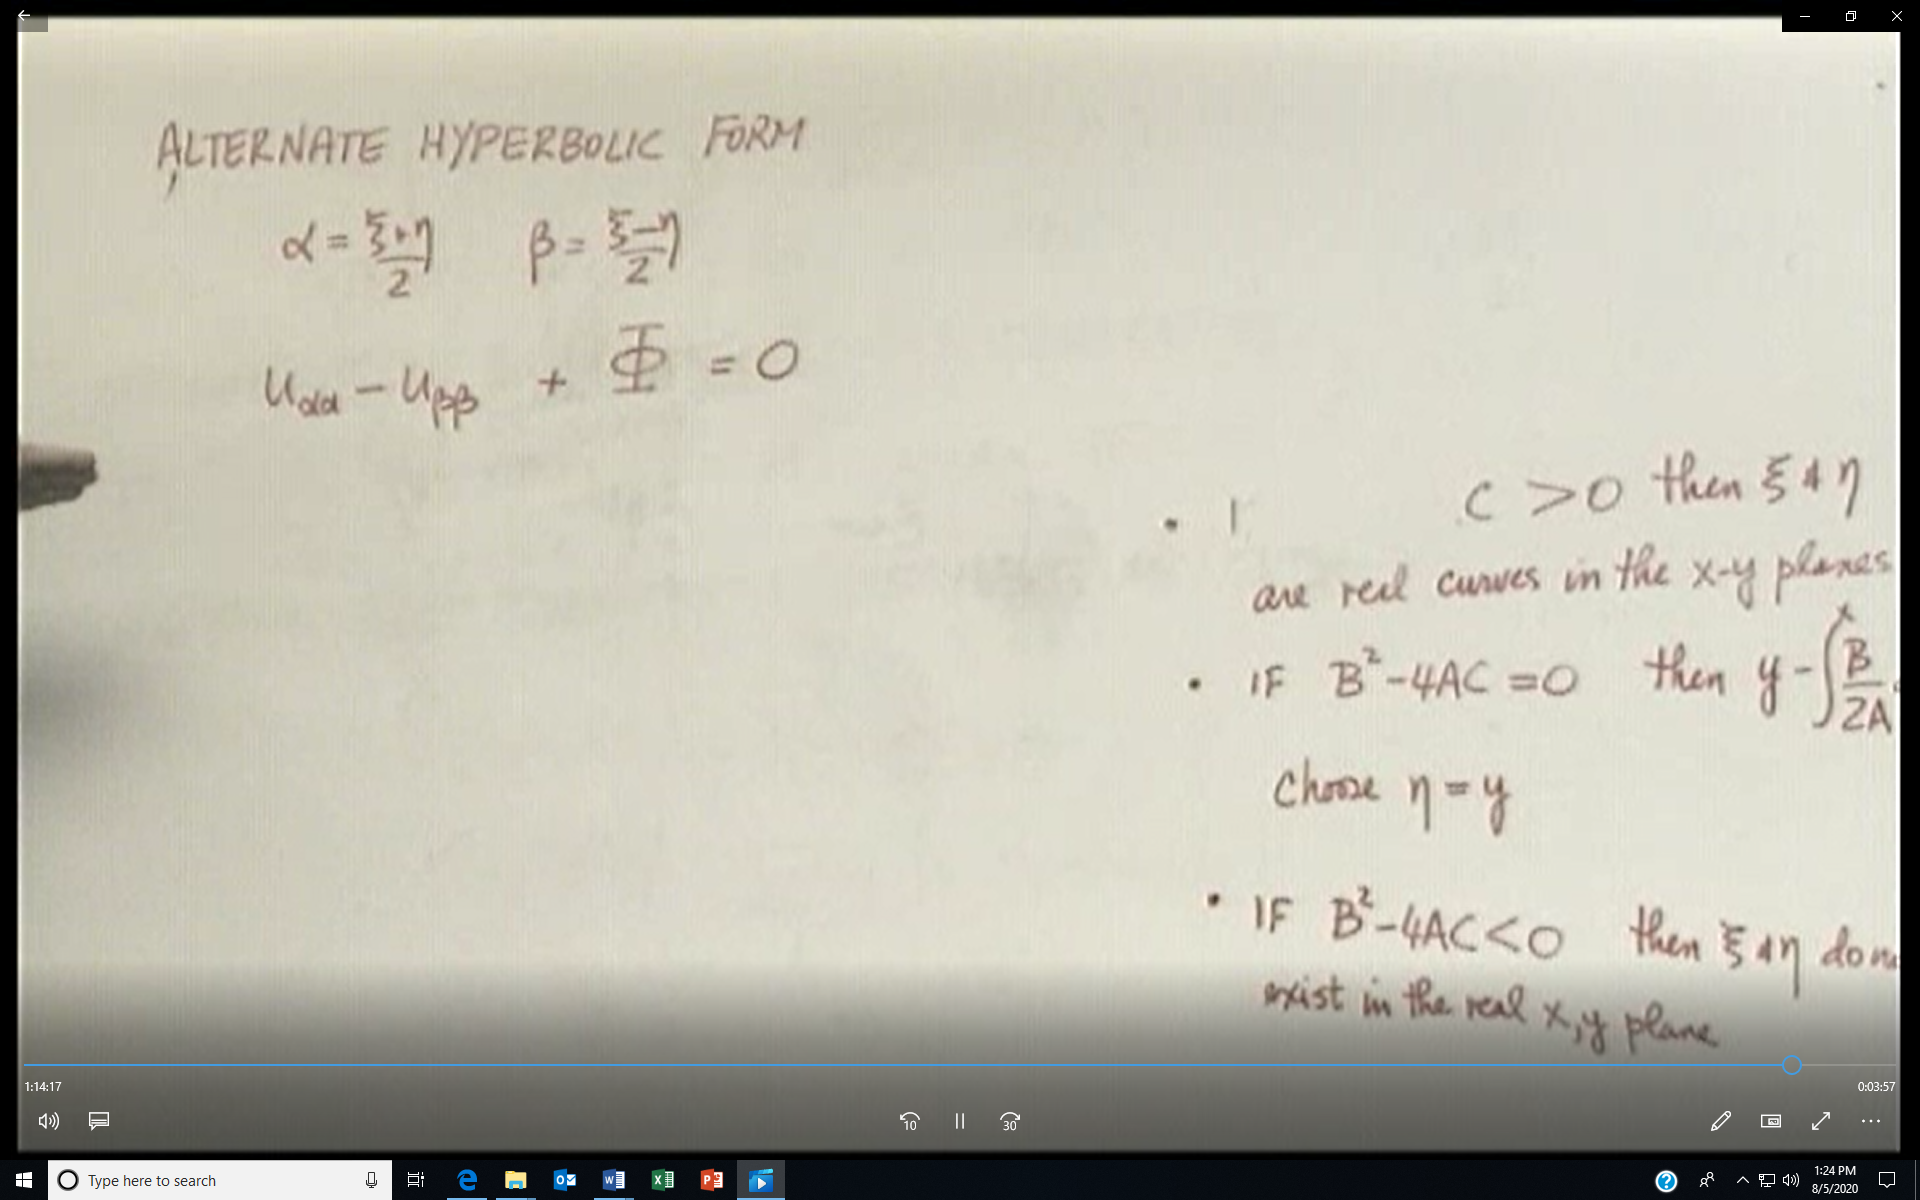 ALTERNATE HYPERBOLIC FORM
α = ξ+η/2 β = ξ−η/2
u_αα − u_ββ + Φ = 0
• I C > 0 then ξ & η
are real curves in the x-y planes
• IF B² − 4AC = 0 then y − ∫ˣ B/2A
Choose η = y
• IF B² − 4AC < 0 then ξ & η do no
exist in the real x, y plane
1:14:17
0:03:57
10
30
Type here to search
1:24 PM
8/5/2020